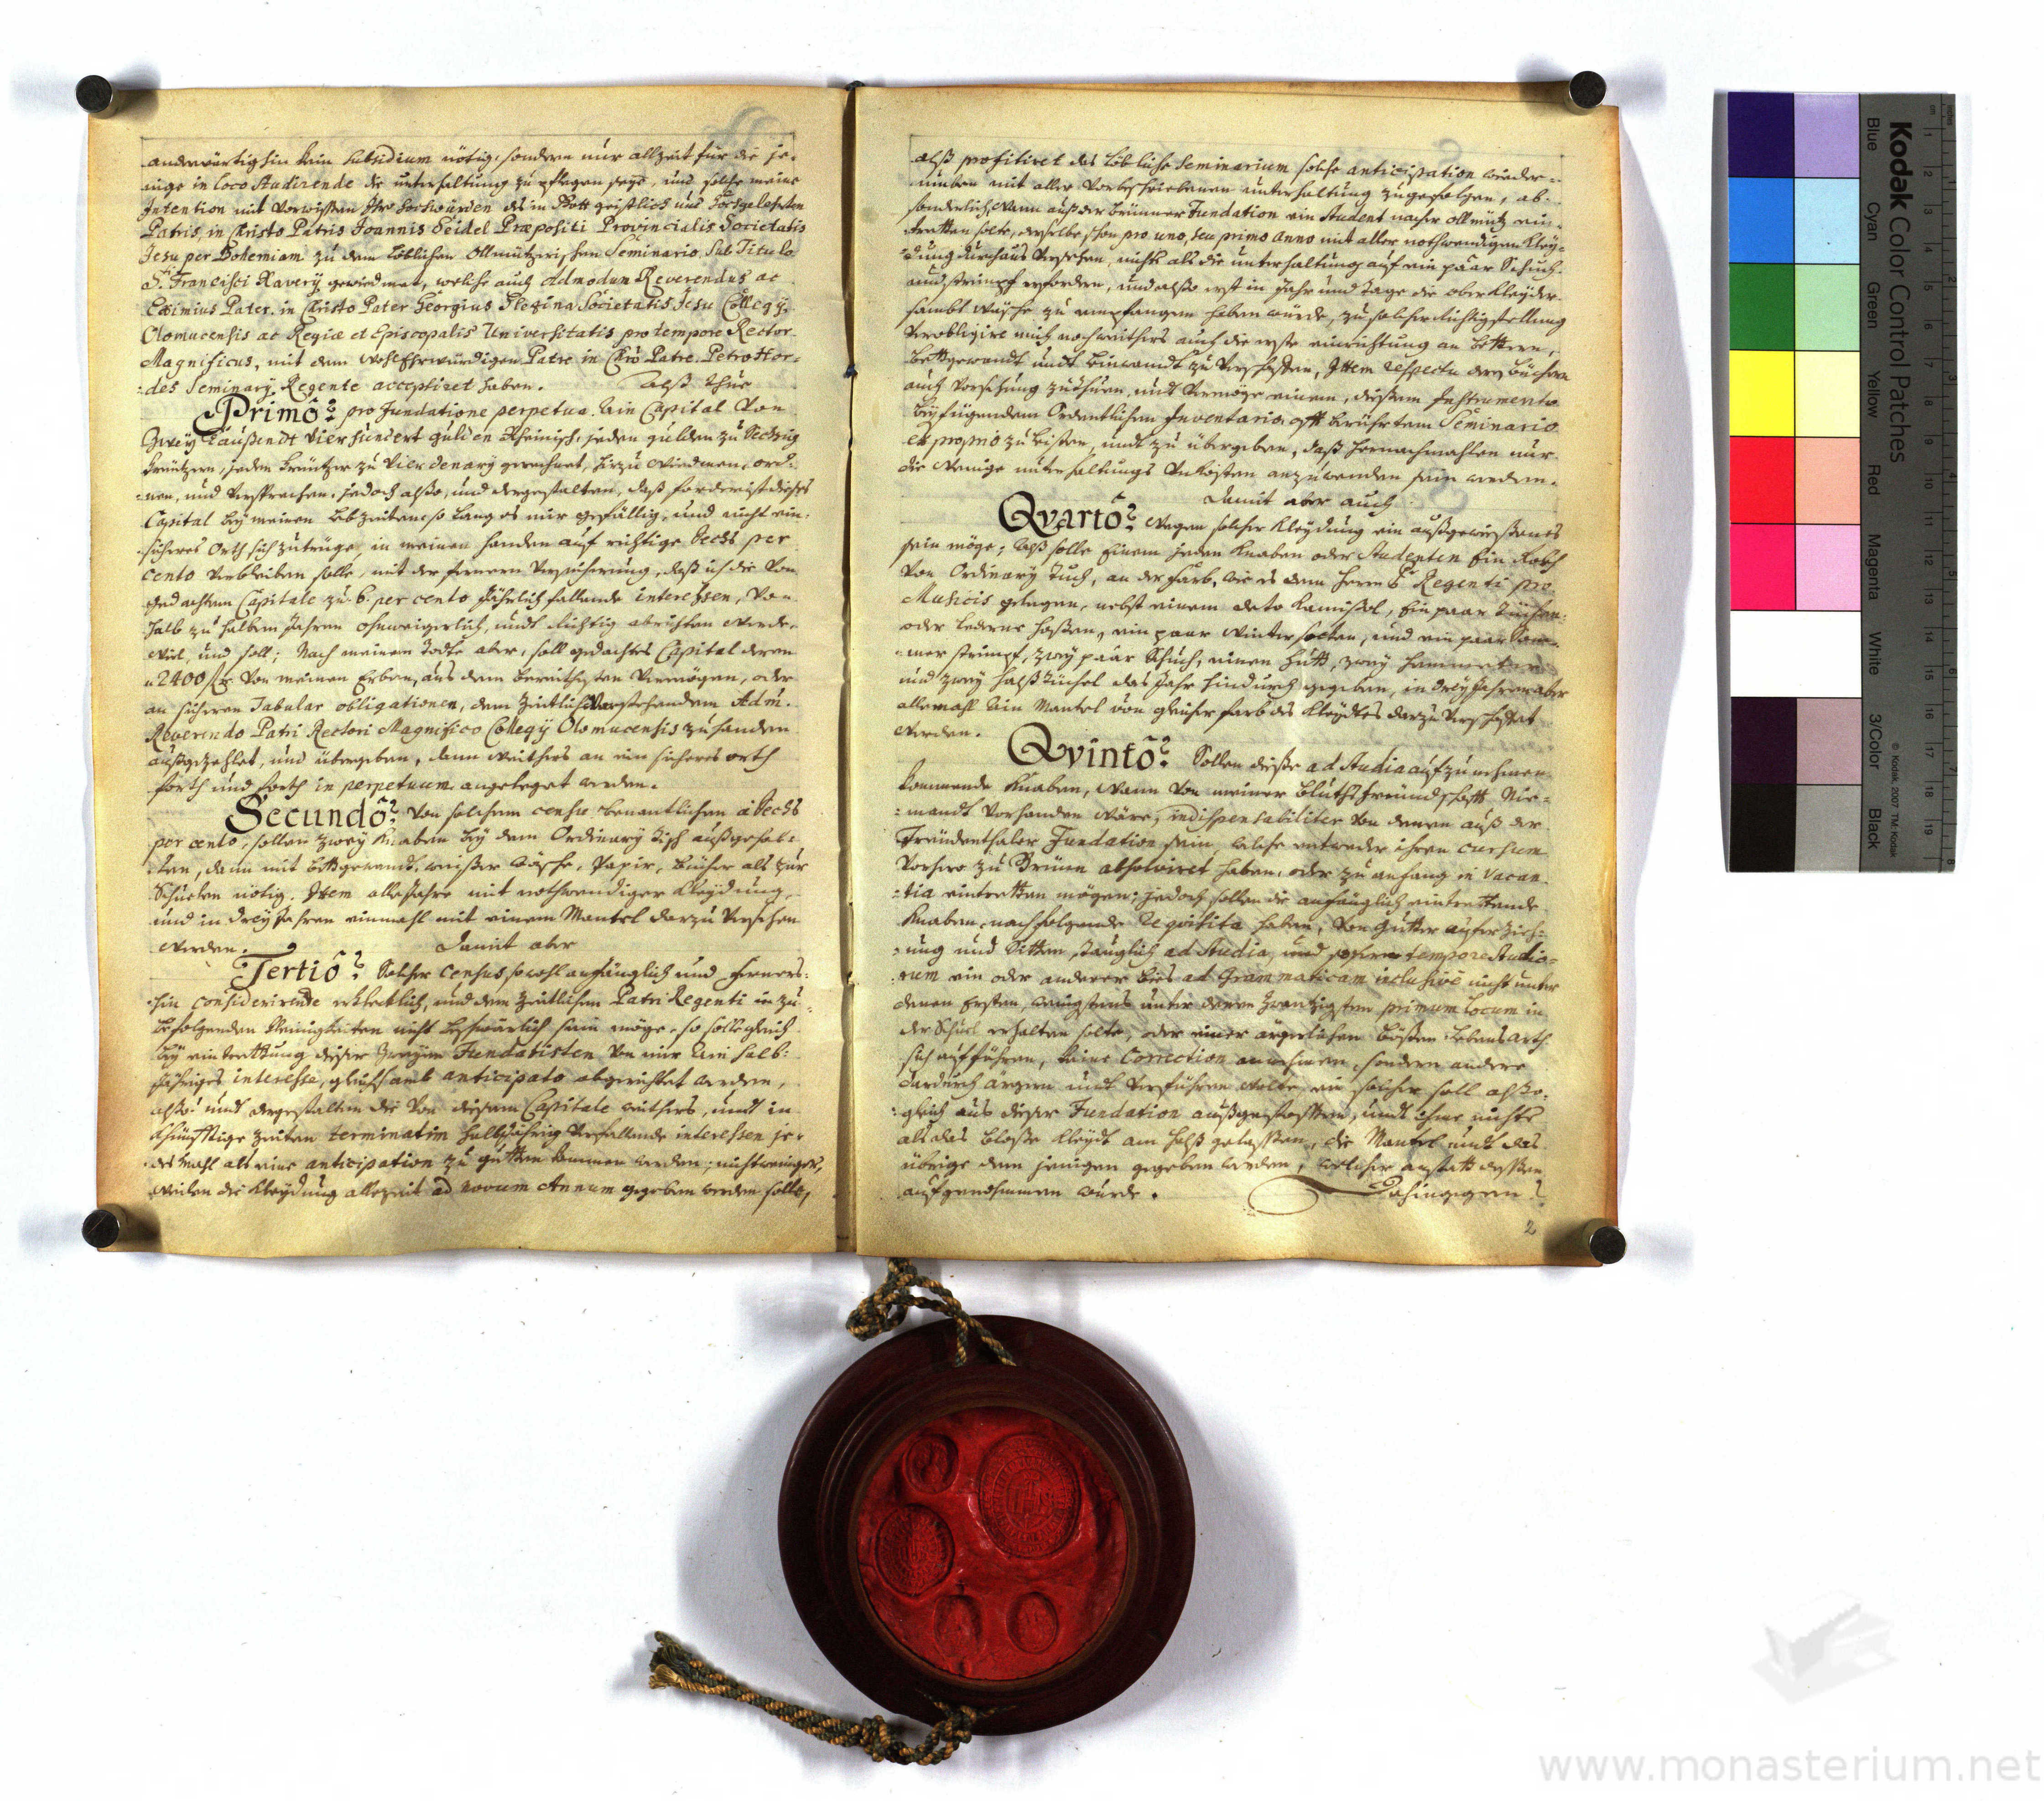 anderwärtighin kein Subsidium nötig, sondern nur allzeit für die je-
nige in loco Studirende die unterhaltung zu pflegen seye, und solche meine
Intention mit Vorwissen Ihro Hochwürden des in Gott geistlich und Hochgelehrten
Patris, in Christo Patris Joannis Seidel Præpositi Provincialis Societatis
Jesu per Bohemiam zu dem löblichen Ollmützerischen Seminario, Sub Titulo
S. Francisci Xaverÿ gewiedmet, welche auch Admodum Reverendus ac
Eximius Pater in Christo Pater Georgius Societatis Jesu Collegÿ
Olomucensis ac Regiæ et Episcopalis Universitatis pro tempore Rector
Magnificus, mit dem WohlEhrwürdigen Patre in Chro Patre Petro Hor-
des Seminarÿ Regente acceptiret haben. Alß thue
Primò pro Fundatione perpetua Ein Capital Von
Zweÿ Taußendt Vierhundert gulden Rheinisch, jeden gulden zu Sechzig
Kreützern, jeden Kreützer zu Vier denarÿ gerechnet, hirzu wiedmen, ord-
nen, und Versprechen. jedoch alßo, und dergestalten, daß forderist dieses
Capital beÿ meinen Lebzeiten so lang es mir gefällig, und nicht ein
sicheres Orth sich zutrüge, in meinen handen auf richtige Sechs per
cento Verbleiben solle, mit der fernern Versicherung, daß ich die Von
gedachtem Capitale zu 6. per cento Jährlich fallende interehsen, Von
halb zu halben Jahren ohnweigerlich, undt richtig abrichten werde,
will, und soll; Nach meinem Todte aber, soll gedachtes Capital deren
2400 fl. Von meinen Erben, aus dem bereithesten Vermögen, oder
an sicheren Tabular obligationen, dem Zeitlich Vorstehendem Adm.
Reverendo Patri Rectori Magnifico Collegÿ Olomucensis zuhanden
außgezehlet, und übergeben, dann weithers an ein sicheres orth
forth und forth in perpetuum angeleget werden.
Secundò Von solchem censu benantlichen à Sechs
per cento, sollen zweÿ Knaben beÿ dem Ordinarÿ Tisch außgehal-
ten, dann mit bettgewandt, weißer wösche, Papir, bücher als zur
Schuelen nötig. Item alle Jahre mit nothwendiger Kleÿdung,
und in dreÿ Jahren einmahl mit einem Mantel darzu Versehen
werden. Damit aber
Tertiò Solcher Census so wohl anfänglich und ferners
hin considerirende erklecklich, und dem Zeitlichen Patri Regenti in zu
befolgenden nicht beschwärlich sein möge, so solle gleich
beÿ eintrettung dieser Zweÿen Fundatisten Von mir Ein halb-
Jähriges interesse, gleichsamb anticipato abgerichtet werden,
alßo undt dergestalten die Von diesem Capitale weithers, undt in
Khünfftige zeiten terminatim halbjährig Verfallende interehsen je-
des Mahl als eine anticipation zu gutten kommen werden; nichtweniger,
weilen die Kleÿdung allezeit ad novum Annum gegeben werden solle,
alß profitiret das löbliche Seminarium solche anticipation wieder-
umben mit aller Vorbeschriebenen unterhaltung zugefolgen, ab-
sonderlich, Wann auß der Brünner Fundation ein Student nacher Ollmütz ein-
tretten solte, derselbe schon pro uno, seu primo Anno mit aller nothwendigen Kleÿ-
dung durchaus Versehen, nichts als die unterhaltung auf ein paar Schuch
undt strimpf erfordern, und alßo erst in Jahr und Tage die ober Kleÿder
sambt wäsche zu empfangen haben würde, zu solcher Richtigstellung
Verobligire mich nochweithers auch die erste einrichtung an bettern,
bettgewandt undt Leinwandt zu Verschaffen, Item respectu deren Büchern
auch Vorsehung zuthuen, undt Vermöge einem, dießem Instrumento
beÿfügendem Ordentlichen Inventario, offt berührtem Seminario
ex proprio zu leisten, undt zu übergeben, daß hernachmahlen nur
die Wenige unterhaltungs Unkösten anzuwenden sein werden.
Damit aber auch
Qvartò Wegen solcher Kleÿdung ein außgewießenes
sein möge; Alß solle Einem jeden Knaben oder Studenten Ein Rock
Von Ordinarÿ Tuch, an der farb, wie es dem Herrn P. Regenti pro
Musicis gelegen, nebst einem deto Kamißol, Ein paar Tüchen
oder Lederne hoßen, ein paar Winter socken, und ein paar Som-
mer strimpf, zweÿ paar Schuch, einen Hutt, zweÿ hemmeter
und zweÿ halß Tüchel das Jahr hindurch gegeben, in dreÿ Jahren aber
allemahl Ein Mantel von gleicher farb des Kleÿdtes darzu Verschaffet
werden.
Qvintò Sollen dieße ad Studia aufzunehmen
kommende Knaben, Wann Von meiner Bluths freündschafft Nie-
mandt Vorhanden Wäre, indispensabiliter Von denen auß der
Freüdenthaler Fundation sein, welche entweder ihren cursum
Vorhero zu Brünn absolviret haben, oder zu anfang in Vacan-
tia eintretten mögen; jedoch sollen die anfänglich eintrettende
Knaben, nachfolgende Reqvisita haben, Von Gutter auferzieh-
ung und Sitten, tauglich ad Studia, und sofern tempore Studio-
rum ein oder anderer bies ad Grammaticam inclusivè nicht unter
denen Ersten, wenigstens unter denen Zwantzigsten primum locum in
der Schuel erhalten solte, oder einer ärgerlichen bößen Lebensarth
sich aufführen, keine Correction annehmen, sondern andere
dardurch ärgern undt Verführen wolte, ein solcher soll alßo-
gleich aus dieser Fundation außgestossen, undt ihme nichts
als das bloße Kleÿdt am halß gelassen, die Mantel undt das
übrige dem jenigen gegeben werden, welcher anstatt dessen
aufgenohmmen würde. Dahingegen
2
Kodak Color Control Patches
© Kodak, 2007 TM: Kodak
Blue Cyan Green Yellow Red Magenta White 3/Color Black
www.monasterium.net